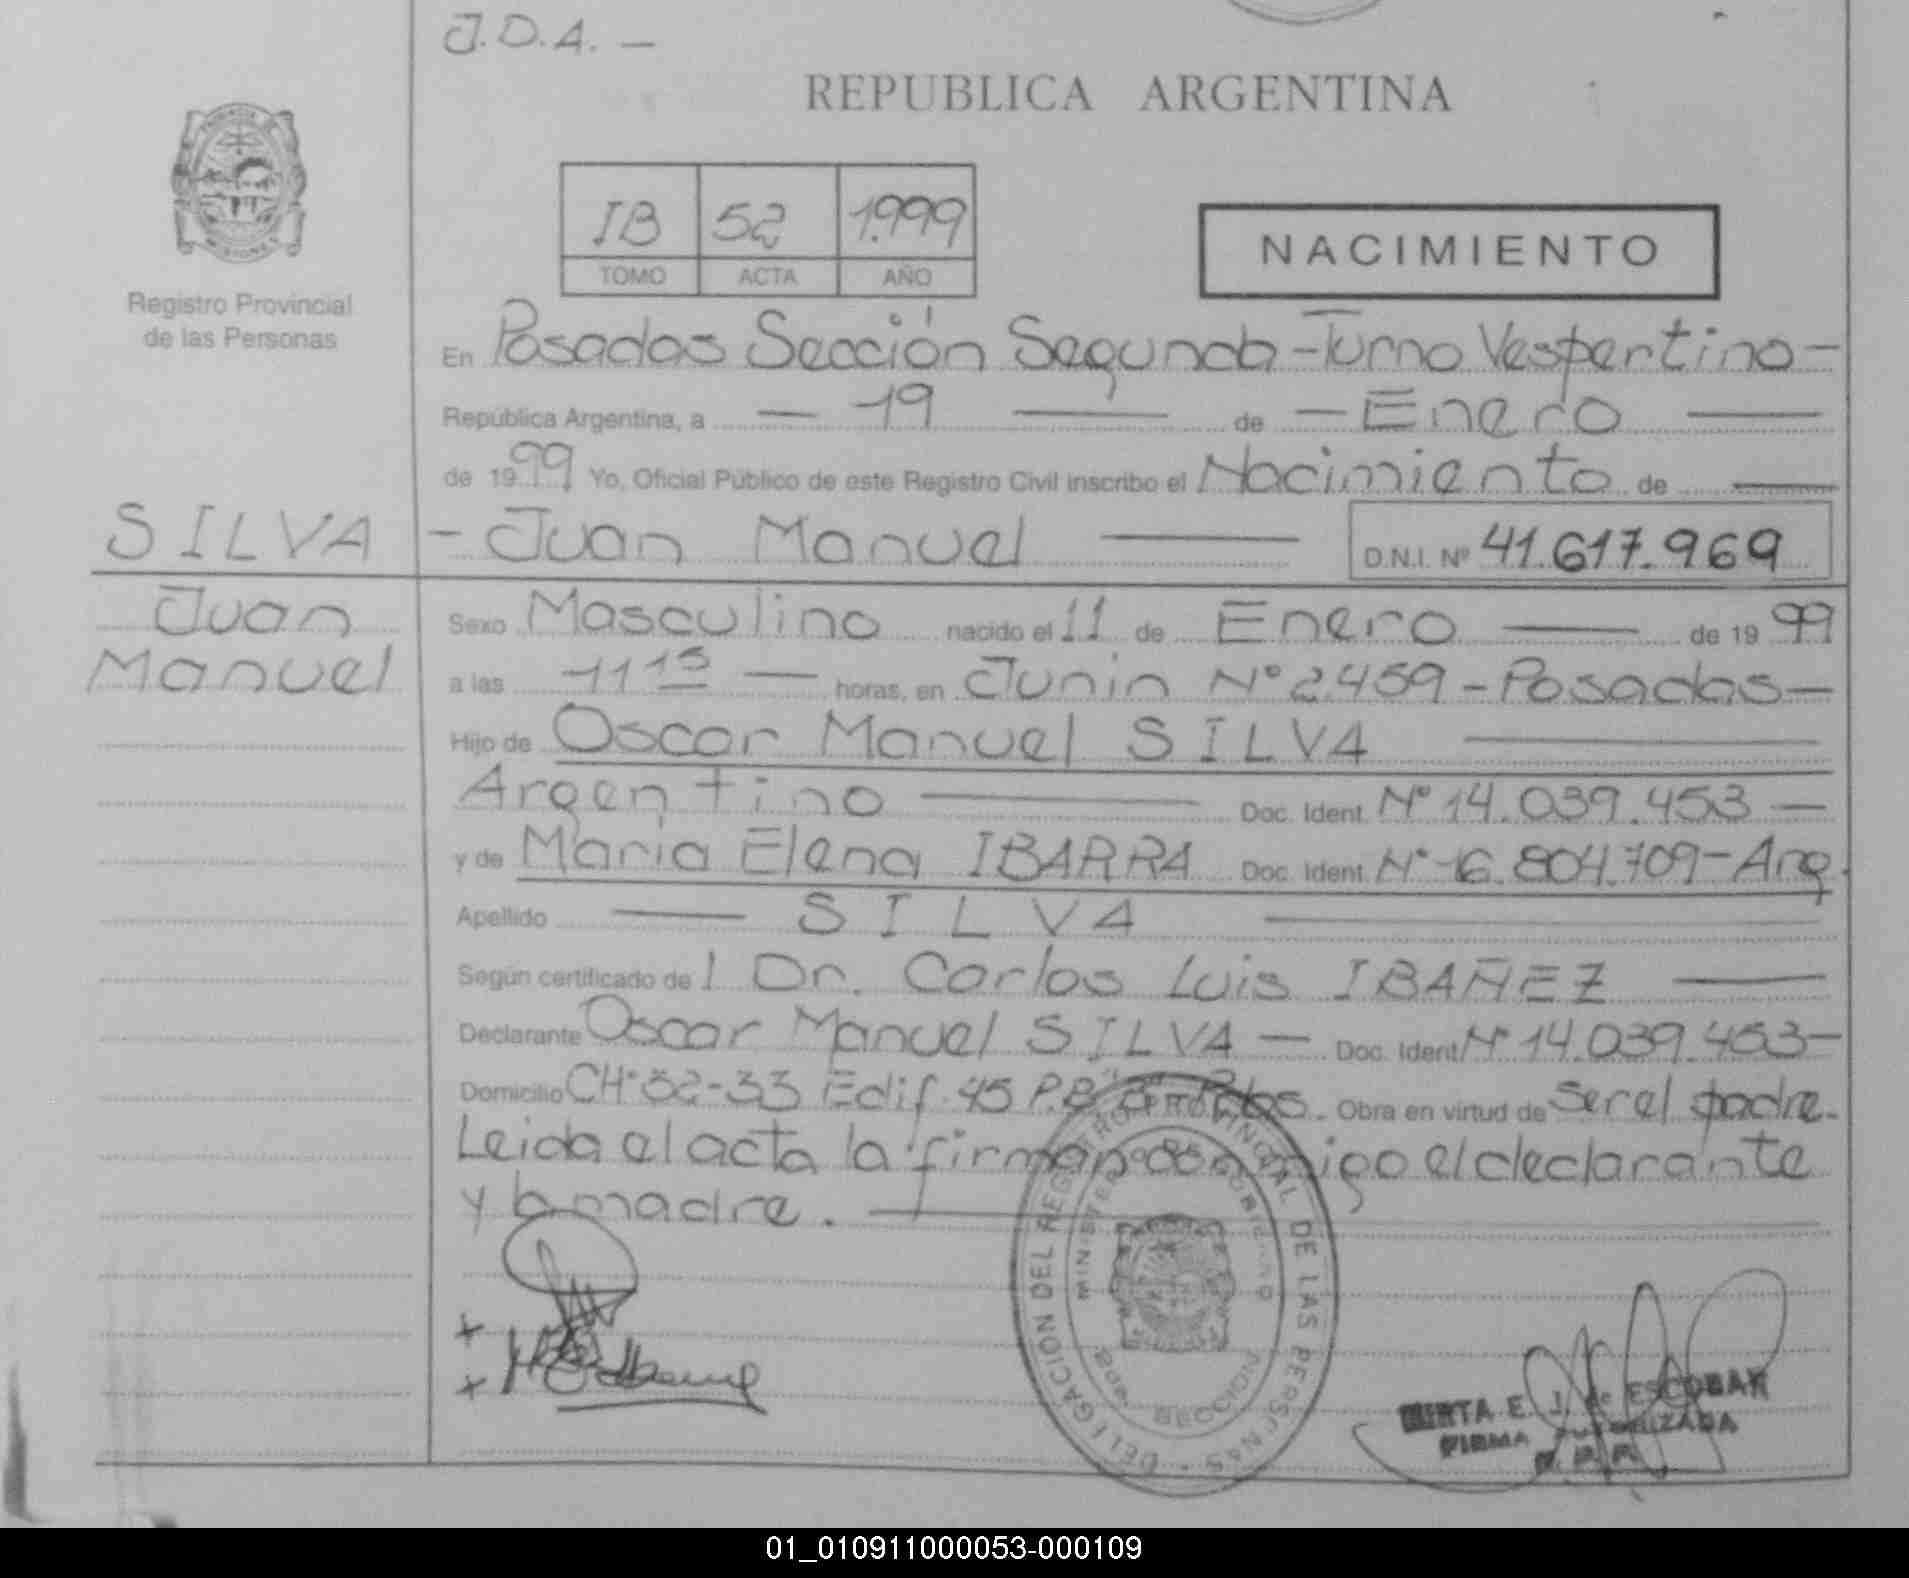 J.D.A. —
REPUBLICA ARGENTINA
IB 52 1.999
TOMO ACTA AÑO
NACIMIENTO
MISIONES
Registro Provincial
de las Personas
En Posadas Sección Segunda - Turno Vespertino -
República Argentina, a — 19 — de — Enero —
de 1999 Yo, Oficial Público de este Registro Civil inscribo el Nacimiento de —
SILVA - Juan Manuel — D.N.I. Nº 41.617.969
Juan
Manuel
Sexo Masculino nacido el 11 de Enero — de 1999
a las 11 15 — horas, en Junin Nº 2.459 - Posadas -
Hijo de Oscar Manuel SILVA —
Argentino — Doc. Ident. Nº 14.039.453 —
y de Maria Elena IBARRA Doc. Ident. Nº 16.804.709 - Arg.
Apellido — SILVA —
Según certificado de l Dr. Carlos Luis IBAÑEZ —
Declarante Oscar Manuel SILVA — Doc. Ident Nº 14.039.453 -
Domicilio CHº 32-33 Edif. 45 P.B. Pdas. Obra en virtud de Ser el padre.
Leida el acta la firman conmigo el declarante
y la madre. —
DELEGACION DEL REGISTRO PROVINCIAL DE LAS PERSONAS
MINISTERIO DE GOBIERNO
MIRTA E. J. de ESCOBAR
FIRMA AUTORIZADA
01_010911000053-000109